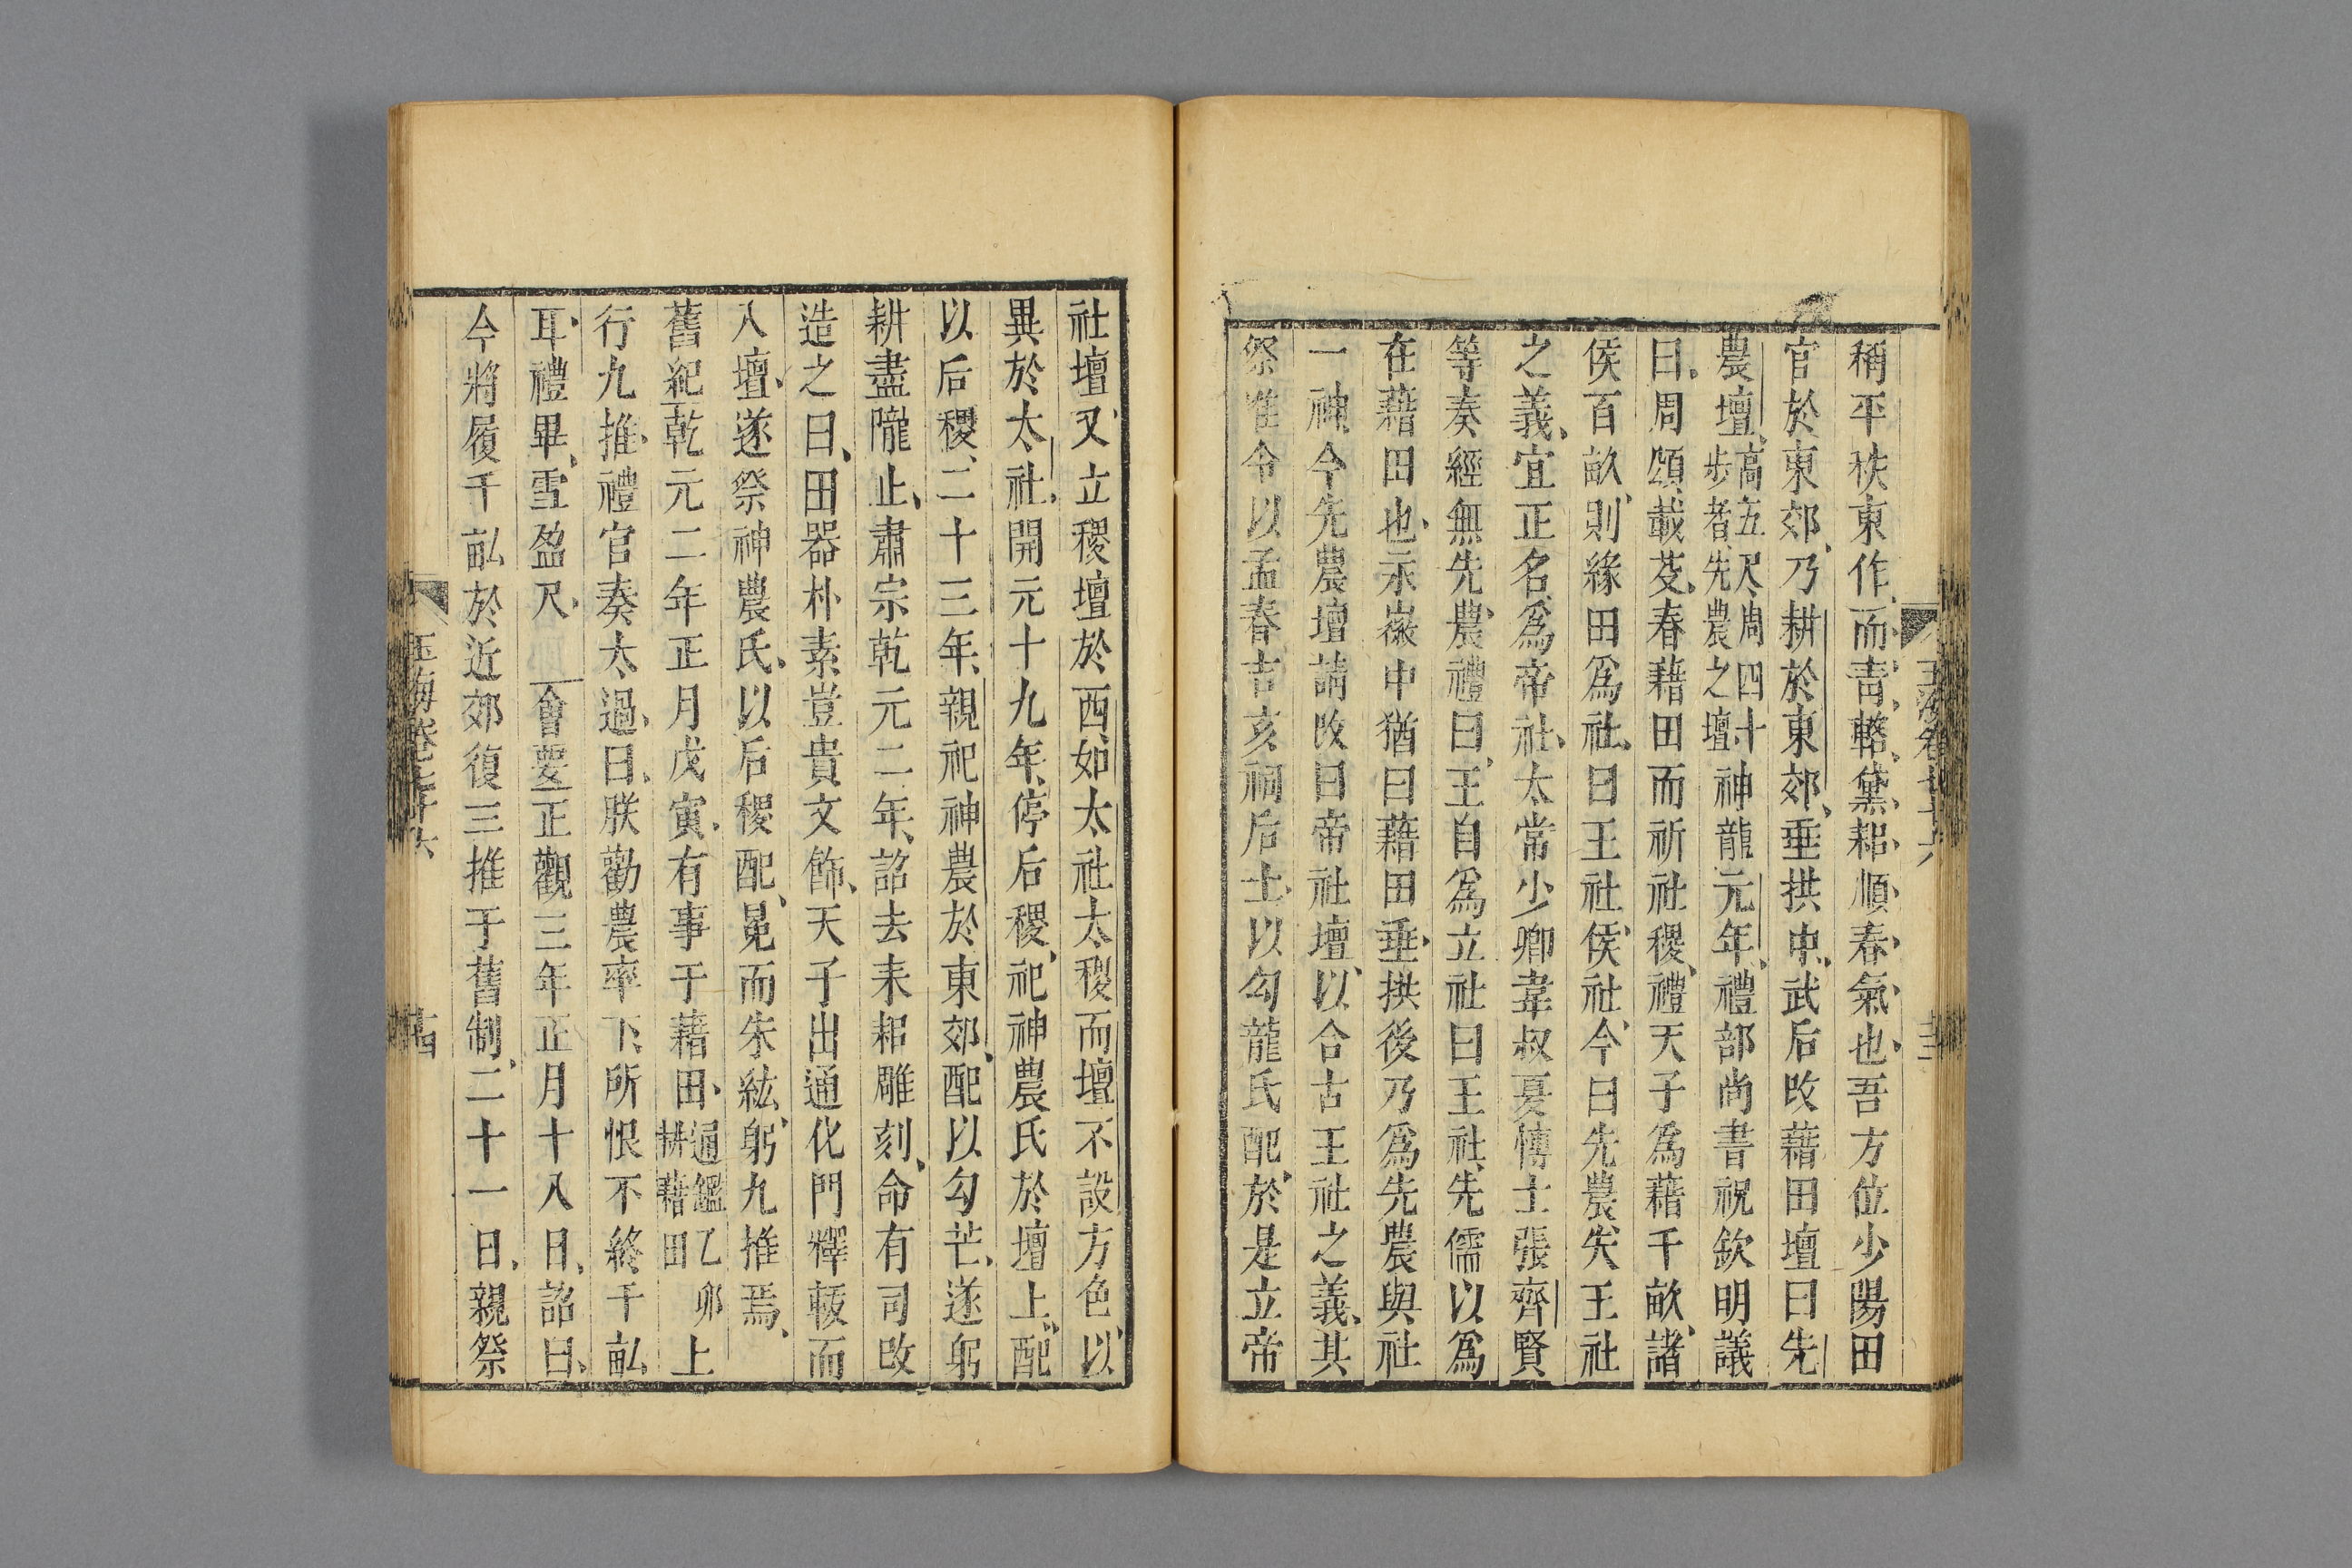 稱平秩東作而靑輅黛耜順春氣也吾方位少陽田
官於東郊乃耕於東郊垂拱中武后改藉田壇曰先
農壇高五尺周四十步者先農之壇神龍元年禮部尚書祝欽明議
曰周頌載芟春藉田而祈社稷禮天子爲藉千畝諸
侯百畝則緣田爲社曰王社侯社今曰先農失王社
之義宜正名爲帝社太常少卿韋叔夏愽士張齊賢
等奏經無先農禮曰王自爲立社曰王社先儒以爲
在藉田也永嶶中猶曰藉田垂拱後乃爲先農與社
一神今先農壇請改曰帝社壇以合古王社之義其
祭准令以孟春吉亥祠后土以勾龍氏配於是立帝
社壇又立稷壇於西如太社太稷而壇不設方色以
異於太社開元十九年停后稷祀神農氏於壇上配
以后稷二十三年親祀神農於東郊配以勾芒遂躬
耕盡隴止肅宗乾元二年詔去耒耜雕刻命有司改
造之曰田器朴素豈貴文飾天子出通化門釋軷而
入壇遂祭神農氏以后稷配冕而朱紘躬九推焉
舊紀乾元二年正月戊寅有事于藉田通鑑乙卯耕藉田上
行九推禮官奏太過曰朕勸農率下所恨不終千畝
耳禮畢雪盈尺會要正觀三年正月十八日詔曰
今將履千畝於近郊復三推于舊制二十一日親祭
玉海卷七十六
十四